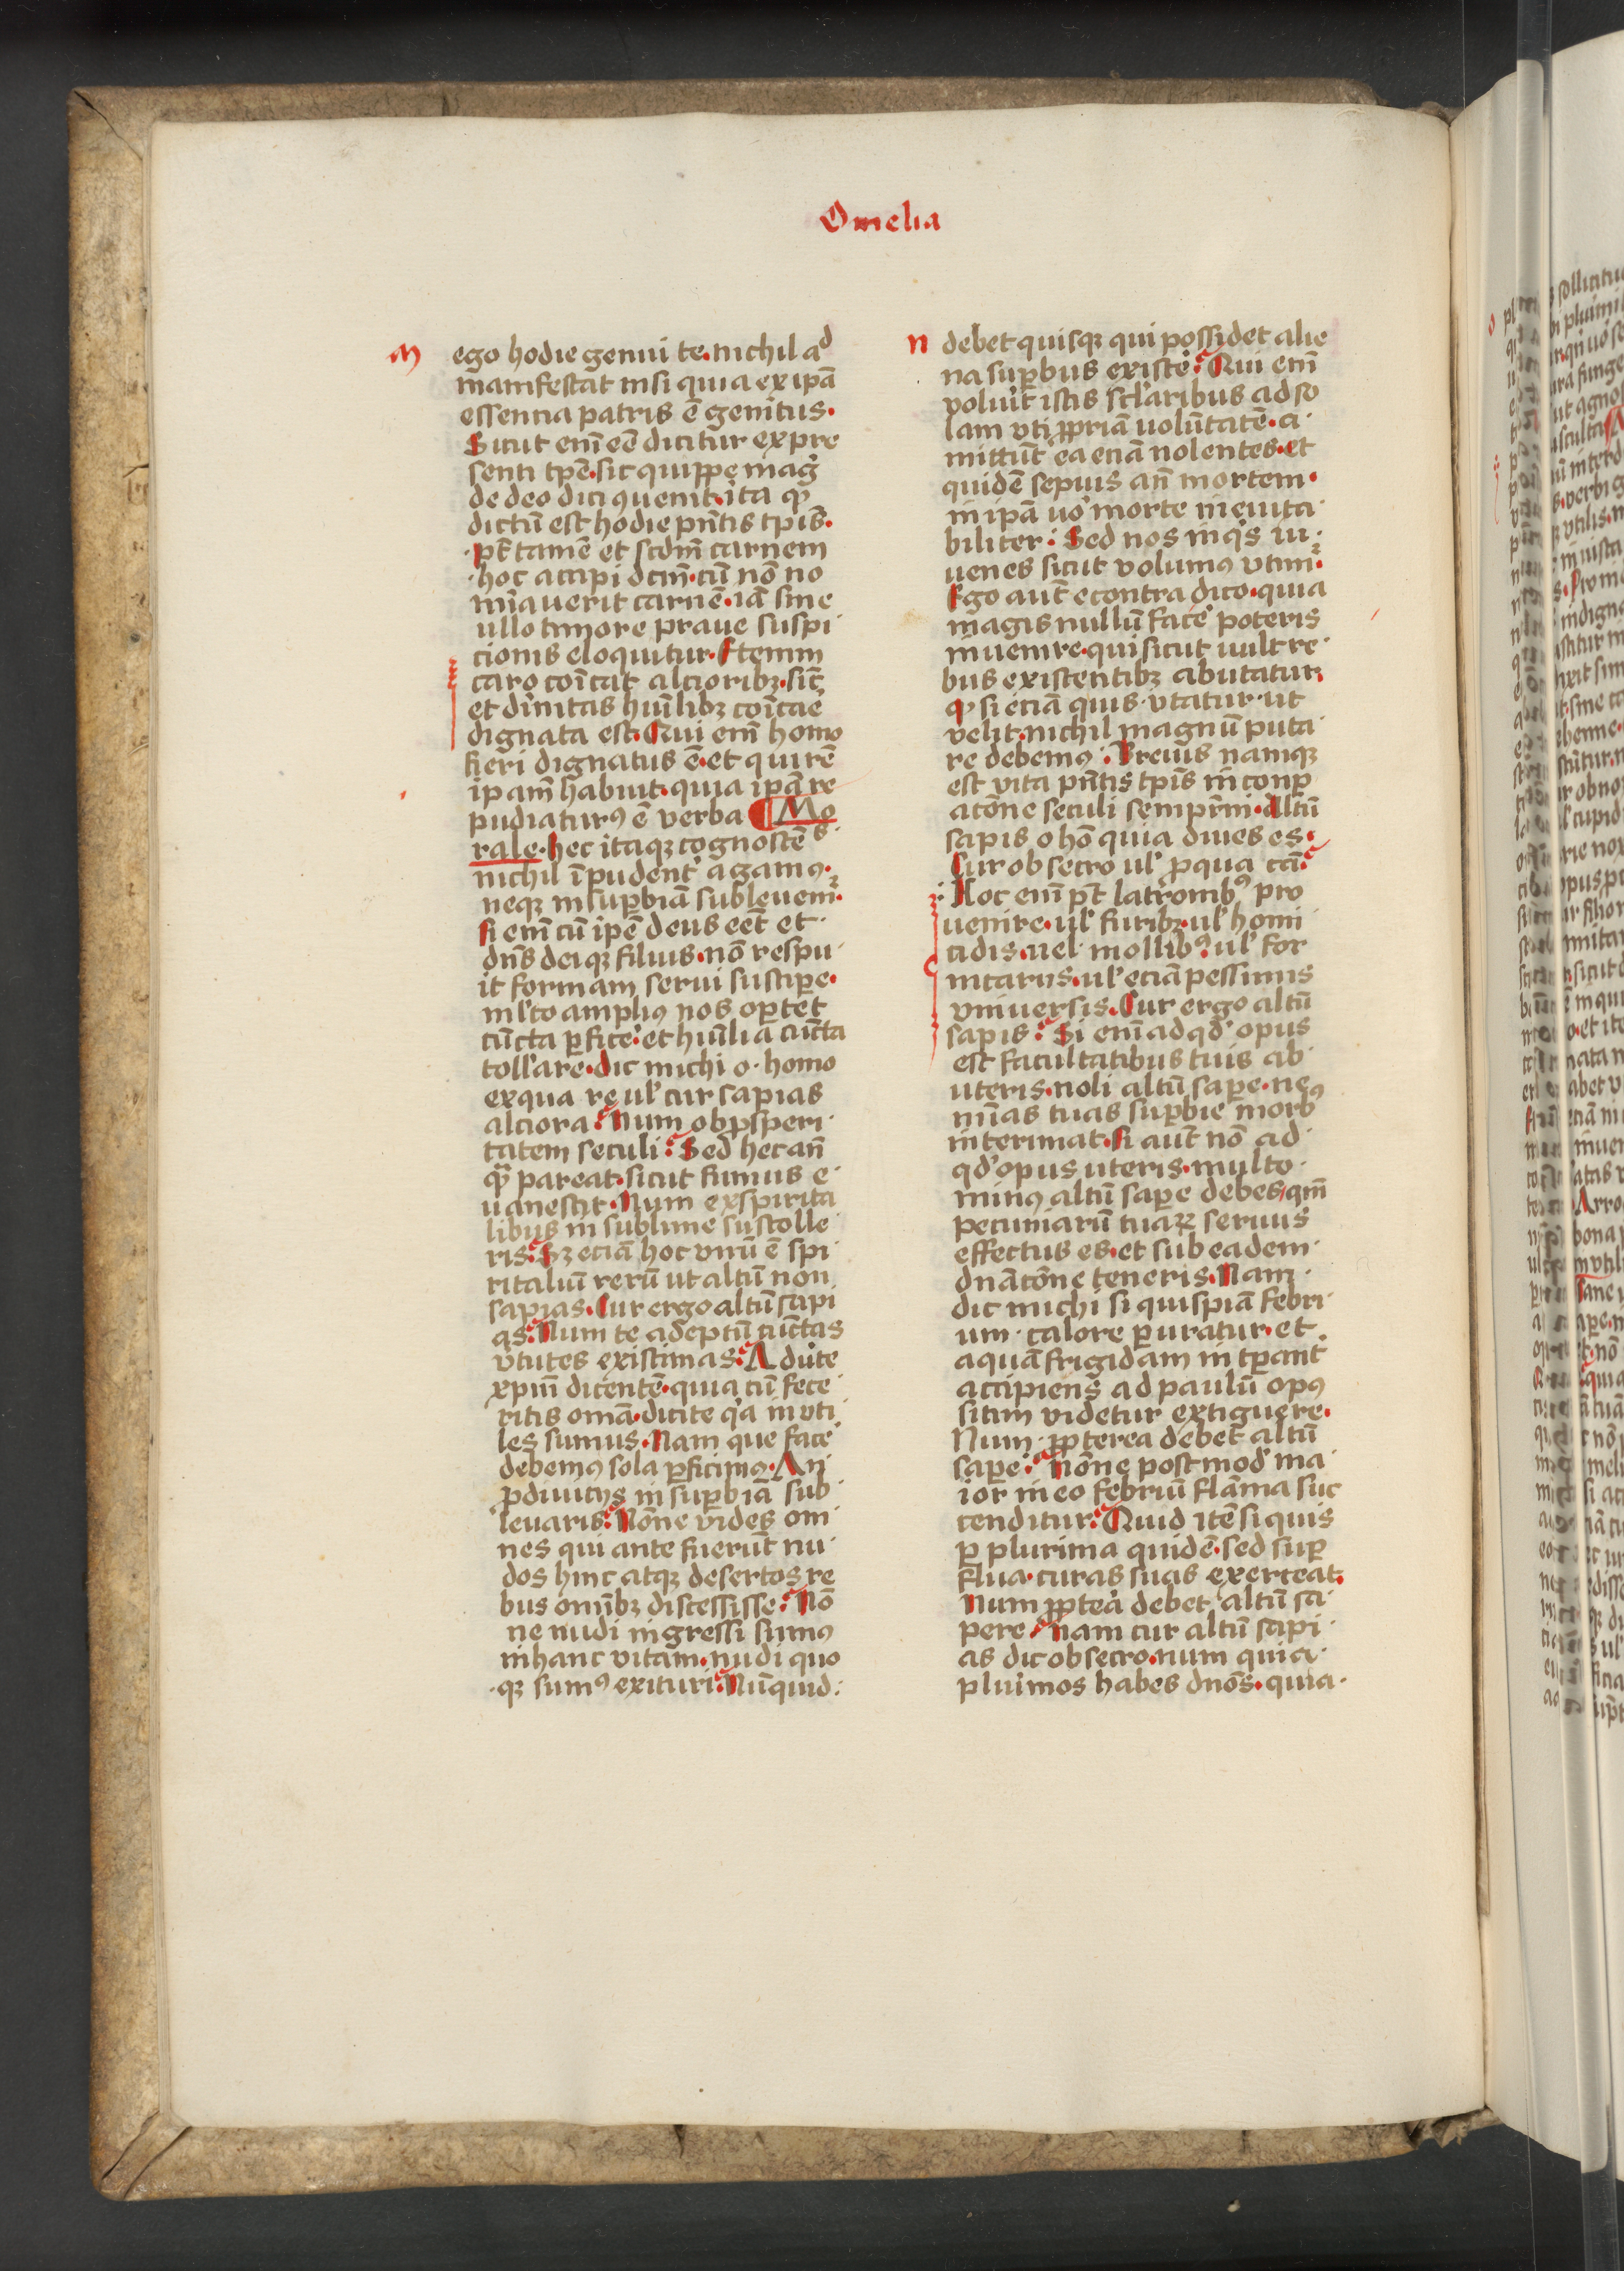 Omelia
m
ego hodie genui te. nichil ad
manifestat nisi quia ex ip̄a
essencia patris ē genitus.
Sicut em̄ eē dicitur ex pre
senti tp̄e. sic quippe mag̾
de deo dici ꝯuenit. ita ꝙ
dictū est hodie pn̄tis tp̄is.
pt̄ tamē et scdm̄ carnem
hoc accipi dcm̄. cū nō no
mīauerit carnē. iā sine
ullo timore praue suspi
cionis eloquitur. Etenim
caro cōīcat alcioribꝫ. sic̄
et dīnitas hūīlibꝫ cōīcāē
dignata est. Qui em̄ homo
fieri dignatus ē. et qui rē
ipam̄ habuit. quia ipā re
pudiaturꝰ ē verba ¶ Mo
rale. hec itaqꝫ cognoscē s
nichil īpudent̾ agamꝰ.
neqꝫ in suꝑbiā subleuem̄.
si em̄ cū ip̄e deus eēt et
dn̄s deiqꝫ filius. nō respu
it formam serui suscipe.
ml̾to ampliꝰ nos oꝑtet
cūcta ꝑfice̾. et hūīlia cūcta
toll̾are. dic michi o homo
ex qua re ul̾ cur sapias
alciora. Num ob ꝓsperi
tatem seculi. Sed hec an̄
ꝙ̄ pareat. sicut fumus e
uanescit. Num ex spirita
libus in sublime sustolle
ris. Sꝫ eciā hoc vnū ē spi
ritaliū rerū ut altū non
sapias. Cur ergo altū sapi
as. Num te adeptū cūctas
v̾tutes existimas. Adu̾te
xp̄m̄ dicentē. quia cū fece
ritis omā. dicite q̾a inuti
les sumus. Nam que face̾
debemꝰ sola ꝑficimꝰ. An
ꝓ diuicijs in suꝑbiā sub
leuaris. Nōne vides om
nes qui ante fuerūt nu
dos hinc atqꝫ desertos re
bus omībꝫ discessisse. Nō
ne nudi ingressi sumꝰ
in hanc vitam. nudi quo
qꝫ sumꝰ exituri. Nūquid
n
debet quisqꝫ qui possidet alie
na suꝑbus existe̾. Qui em̄
voluīt istis scl̾aribus ad so
lam vti ꝓpriā uolūtatē. a
mittūt ea eciā nolentes. et
quidē sepius an̄ mortem.
in ip̄a uo̾ morte ineuita
biliter. Sed nos inq̾s iu
uenes sicut volumꝰ vtim̾.
Ego aut̄ econtra dico. quia
magis nullū face̾ poteris
inuenire. qui sicut uult re
bus existentibꝫ abutatur.
ꝙ si eciā quis vtatur ut
velit. nichil magnū puta
re debemꝰ. Breuis namqꝫ
est vita pn̄tis tp̄is in conꝑ
acōne seculi sempr̄m. altū
sapis o hō quia diues es.
Cur obsecro ul̾ ꝓ qua cā.
Hoc em̄ pt̄ latrombꝰ pro
uenire. ul̾ furibꝫ. ul̾ homi
cidis. uel mollibꝰ. ul̾ for
nicariis. ul̾ eciā pessimis
vniuersis. Cur ergo altū
sapis. Si em̄ ad qd̾ opus
est facultatibus tuis ab
uteris. noli altū sape. ne
mīas tuas suꝑbie morbꝰ
interimat. Si aut̄ nō ad
qd̾ opus uteris. multo
minꝰ altū sape debes. qm̄
pecuniarū tuaꝝ seruus
effectus es. et sub eadem
dnāc̄one teneris. Nam
dic michi si quispiā febri
um calore ꝑuratur. et
aquā frigidam in tꝑant̄
accipiens ad paulū opꝰ
sitim videtur extiguere.
Num ꝓpterea debet altū
sape̾. Nōne postmod̾ ma
ior in eo febriū flāma suc
cenditur. Quid itē si quis
ꝑ plurima quidē. sed suꝑ
flua. curas suas exerceat.
Num ꝓptea̾ debet altū sa
pere. Nam cur altū sapi
as dic obsecro. num quia
plu̾imos habes dnōs. quia